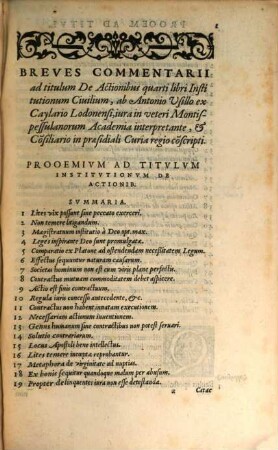 BREVES COMMENTARII
ad titulum De Actionibus quarti libri Insti
tutionum Ciuilium, ab Antonio Vsillo ex
Caylario Lodouensi, iura in veteri Montis-
pessulanorum Academia interpretante, &
Cōsiliario in præsidiali Curia regio cōscripti.
PROOEMIVM AD TITVLVM
INSTITVTIONVM DE
ACTIONIB.
SVMMARIA.
1 Lites vix possunt sine peccato exerceri.
2 Non temere litigandum.
3 Magistratuum institutio à Deo opt. max.
4 Leges inspirante Deo sunt promulgatæ.
5 Comparatio ex Platone ad ostendendam necessitatem Legum.
6 Effectus sequuntur naturam causarum.
7 Societas hominum non est cum viris planè perfectis.
8 Contractus mutuam commoditatem debet afficere.
9 Actio est finis contractuum.
10 Regula iuris concessio antecedente, &c.
11 Contractus non habent innatam executionem.
12 Necessarium actionum inuentionem.
13 Genus humanum sine contractibus non potest seruari.
14 Solutio contrariorum.
15 Locus Apostoli bene intellectus.
16 Lites temerè inceptæ reprobantur.
17 Metaphora de virginitate ad nuptias.
18 Ex bonis sequitur quandoque malum per abusum.
19 Propter delinquentes iura non esse detestanda.
a Cætæ